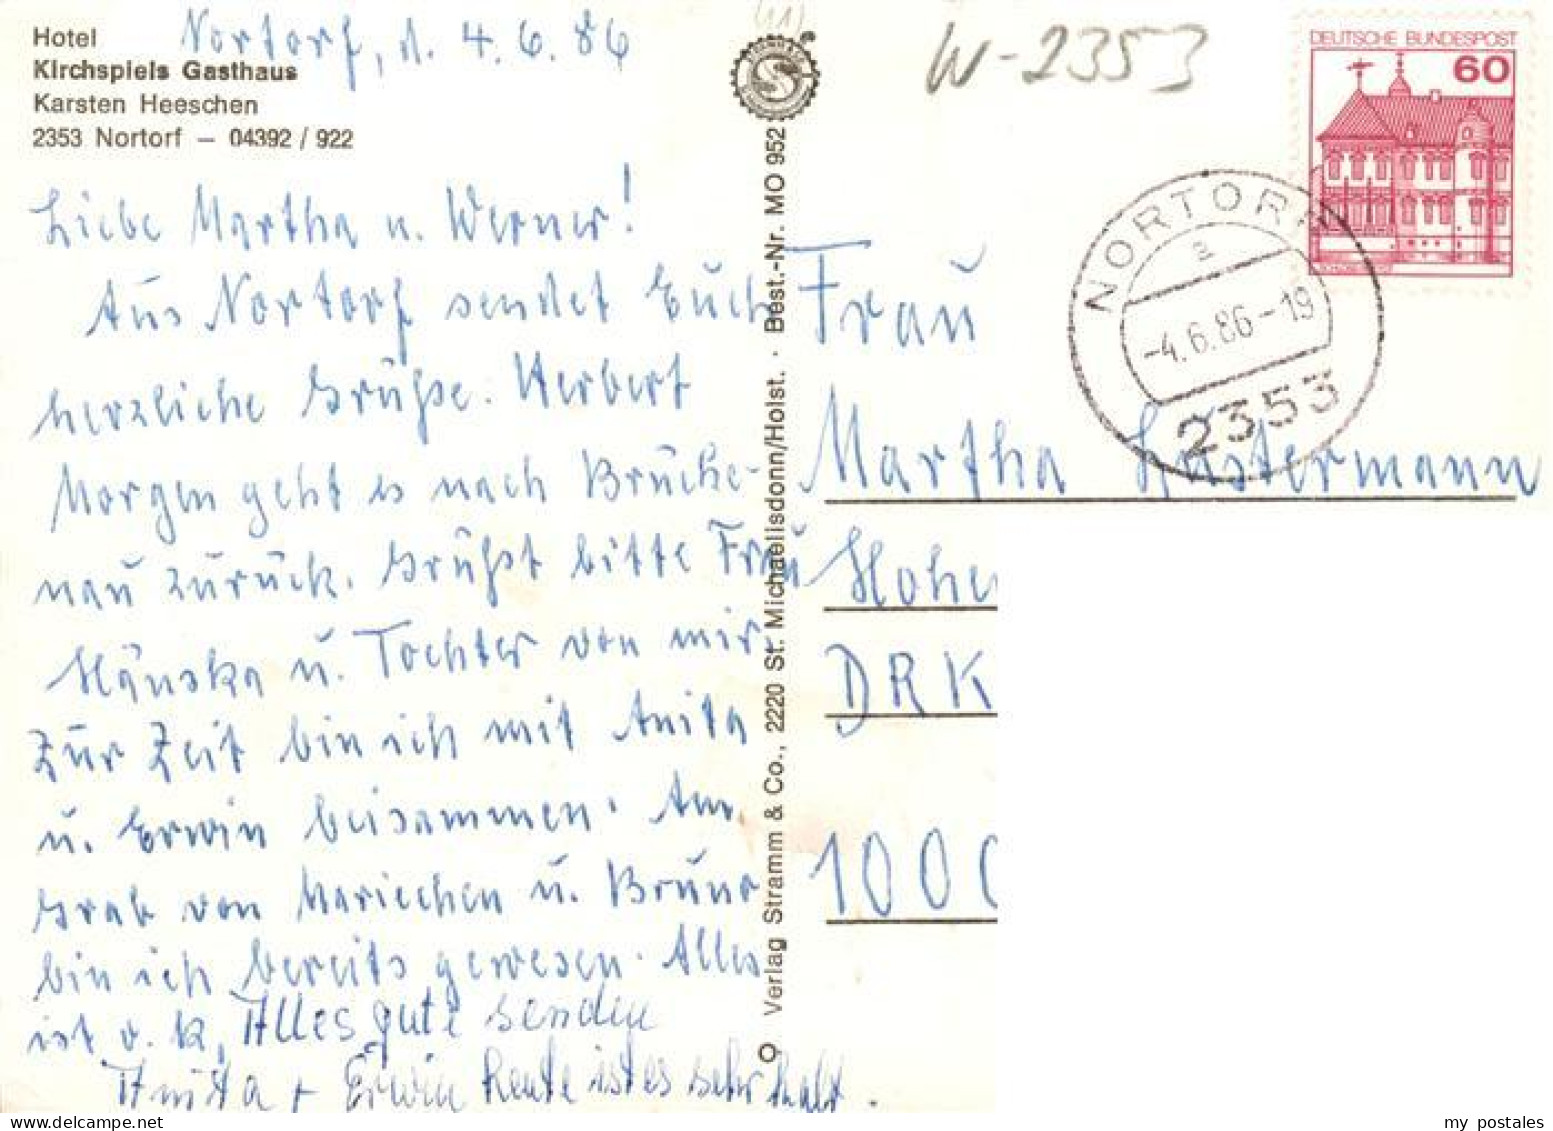 Nortorf, d. 4.6.86
(11)
W-2353
Hotel
Kirchspiels Gasthaus
Karsten Heeschen
2353 Nortorf – 04392 / 922
DEUTSCHE BUNDESPOST
60
NORTORF
a
-4.6.86-19
2353
Liebe Martha u. Werner!
Aus Nortorf sendet Euch
herzliche Grüße. Herbert
Morgen geht es nach Brücke-
nau zurück. Grüßt bitte Frau
Hänska u. Tochter von mir.
Zur Zeit bin ich mit Anita
u. Erwin beisammen. Am
Grab von Mariechen u. Bruno
bin ich bereits gewesen. Alles
ist o.k. Alles gute senden
Anita + Erwin heute ist es sehr kalt.
Verlag Stramm & Co., 2220 St. Michaelisdonn/Holst. · Best.-Nr. MO 952
Frau
Martha Kastermann
Hohe
DRK
1000
my postales